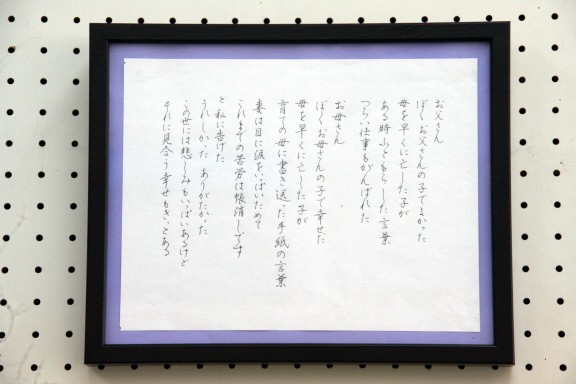 お父さん
ぼくお父さんの子でよかった
母を早くに亡した子が
ある時ふともらした言葉
つらい仕事もがんばれた
お母さん
ぼくお母さんの子で幸せた
母を早くに亡した子が
育ての母に書き送った手紙の言葉
妻は目に涙をいっぱいためて
これまでの苦労は帳消しです
と私に告げた
うれしかった ありがたかった
この世には悲しみもいっぱいあるけど
それに見合う幸せもきっとある